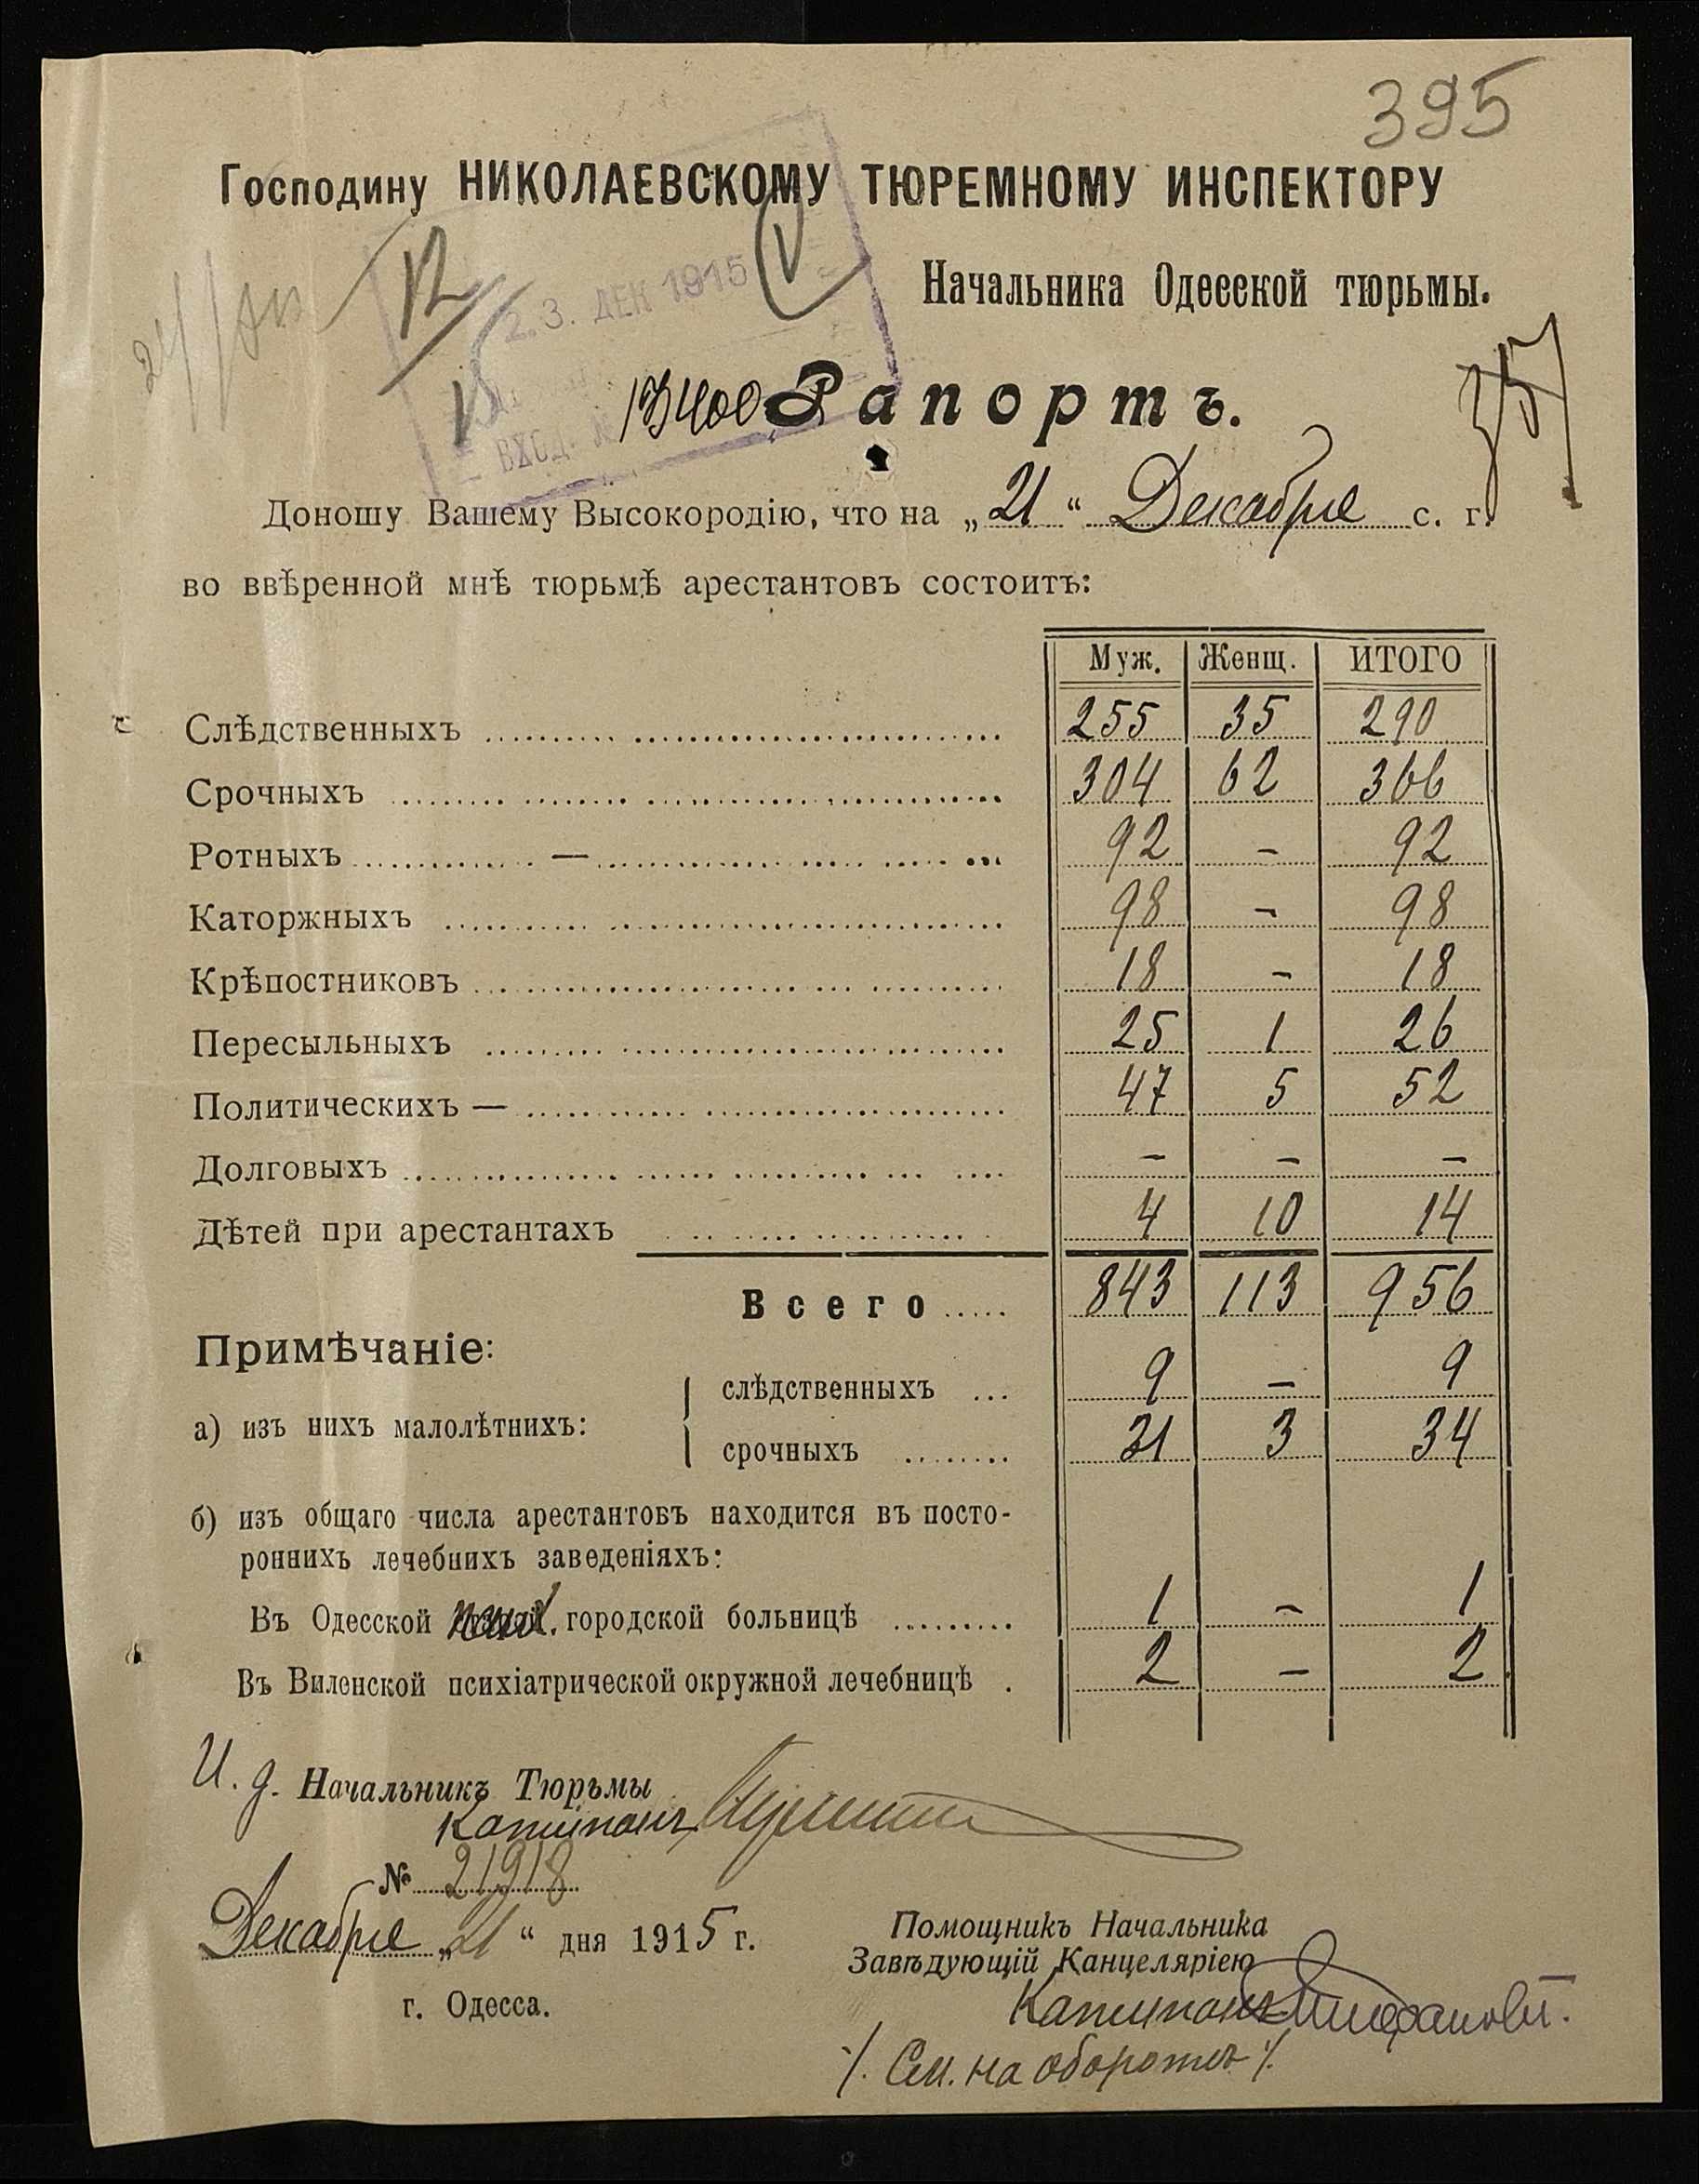 395
Господину НИКОЛАЕВСКОМУ ТЮРЕМНОМУ ИНСПЕКТОРУ
Начальника Одесской тюрьмы.
23. ДЕК 1915
ВХОД. №
13400 Рапортъ.
Доношу Вашему Высокородію, что на „21“ Декабря с. г.
во ввѣренной мнѣ тюрьмѣ арестантовъ состоитъ:
Муж. Женщ. ИТОГО
Слѣдственныхъ 255 35 290
Срочныхъ 304 62 366
Ротныхъ — 92 - 92
Каторжныхъ 98 - 98
Крѣпостниковъ 18 - 18
Пересыльныхъ 25 1 26
Политическихъ — 47 5 52
Долговыхъ - - -
Дѣтей при арестантахъ 4 10 14
Всего 843 113 956
Примѣчаніе:
а) изъ нихъ малолѣтнихъ:
слѣдственныхъ 9 - 9
срочныхъ 31 3 34
б) изъ общаго числа арестантовъ находится въ посто-
роннихъ лечебнихъ заведеніяхъ:
Въ Одесской городской больницѣ 1 - 1
Въ Виленской психіатрической окружной лечебницѣ 2 - 2
И. д. Начальникъ Тюрьмы
Капитанъ
№ 21918
Декабря „21“ дня 1915 г.
г. Одесса.
Помощникъ Начальника
Завѣдующій Канцеляріею
Капитанъ
./. См. на оборотѣ ./.